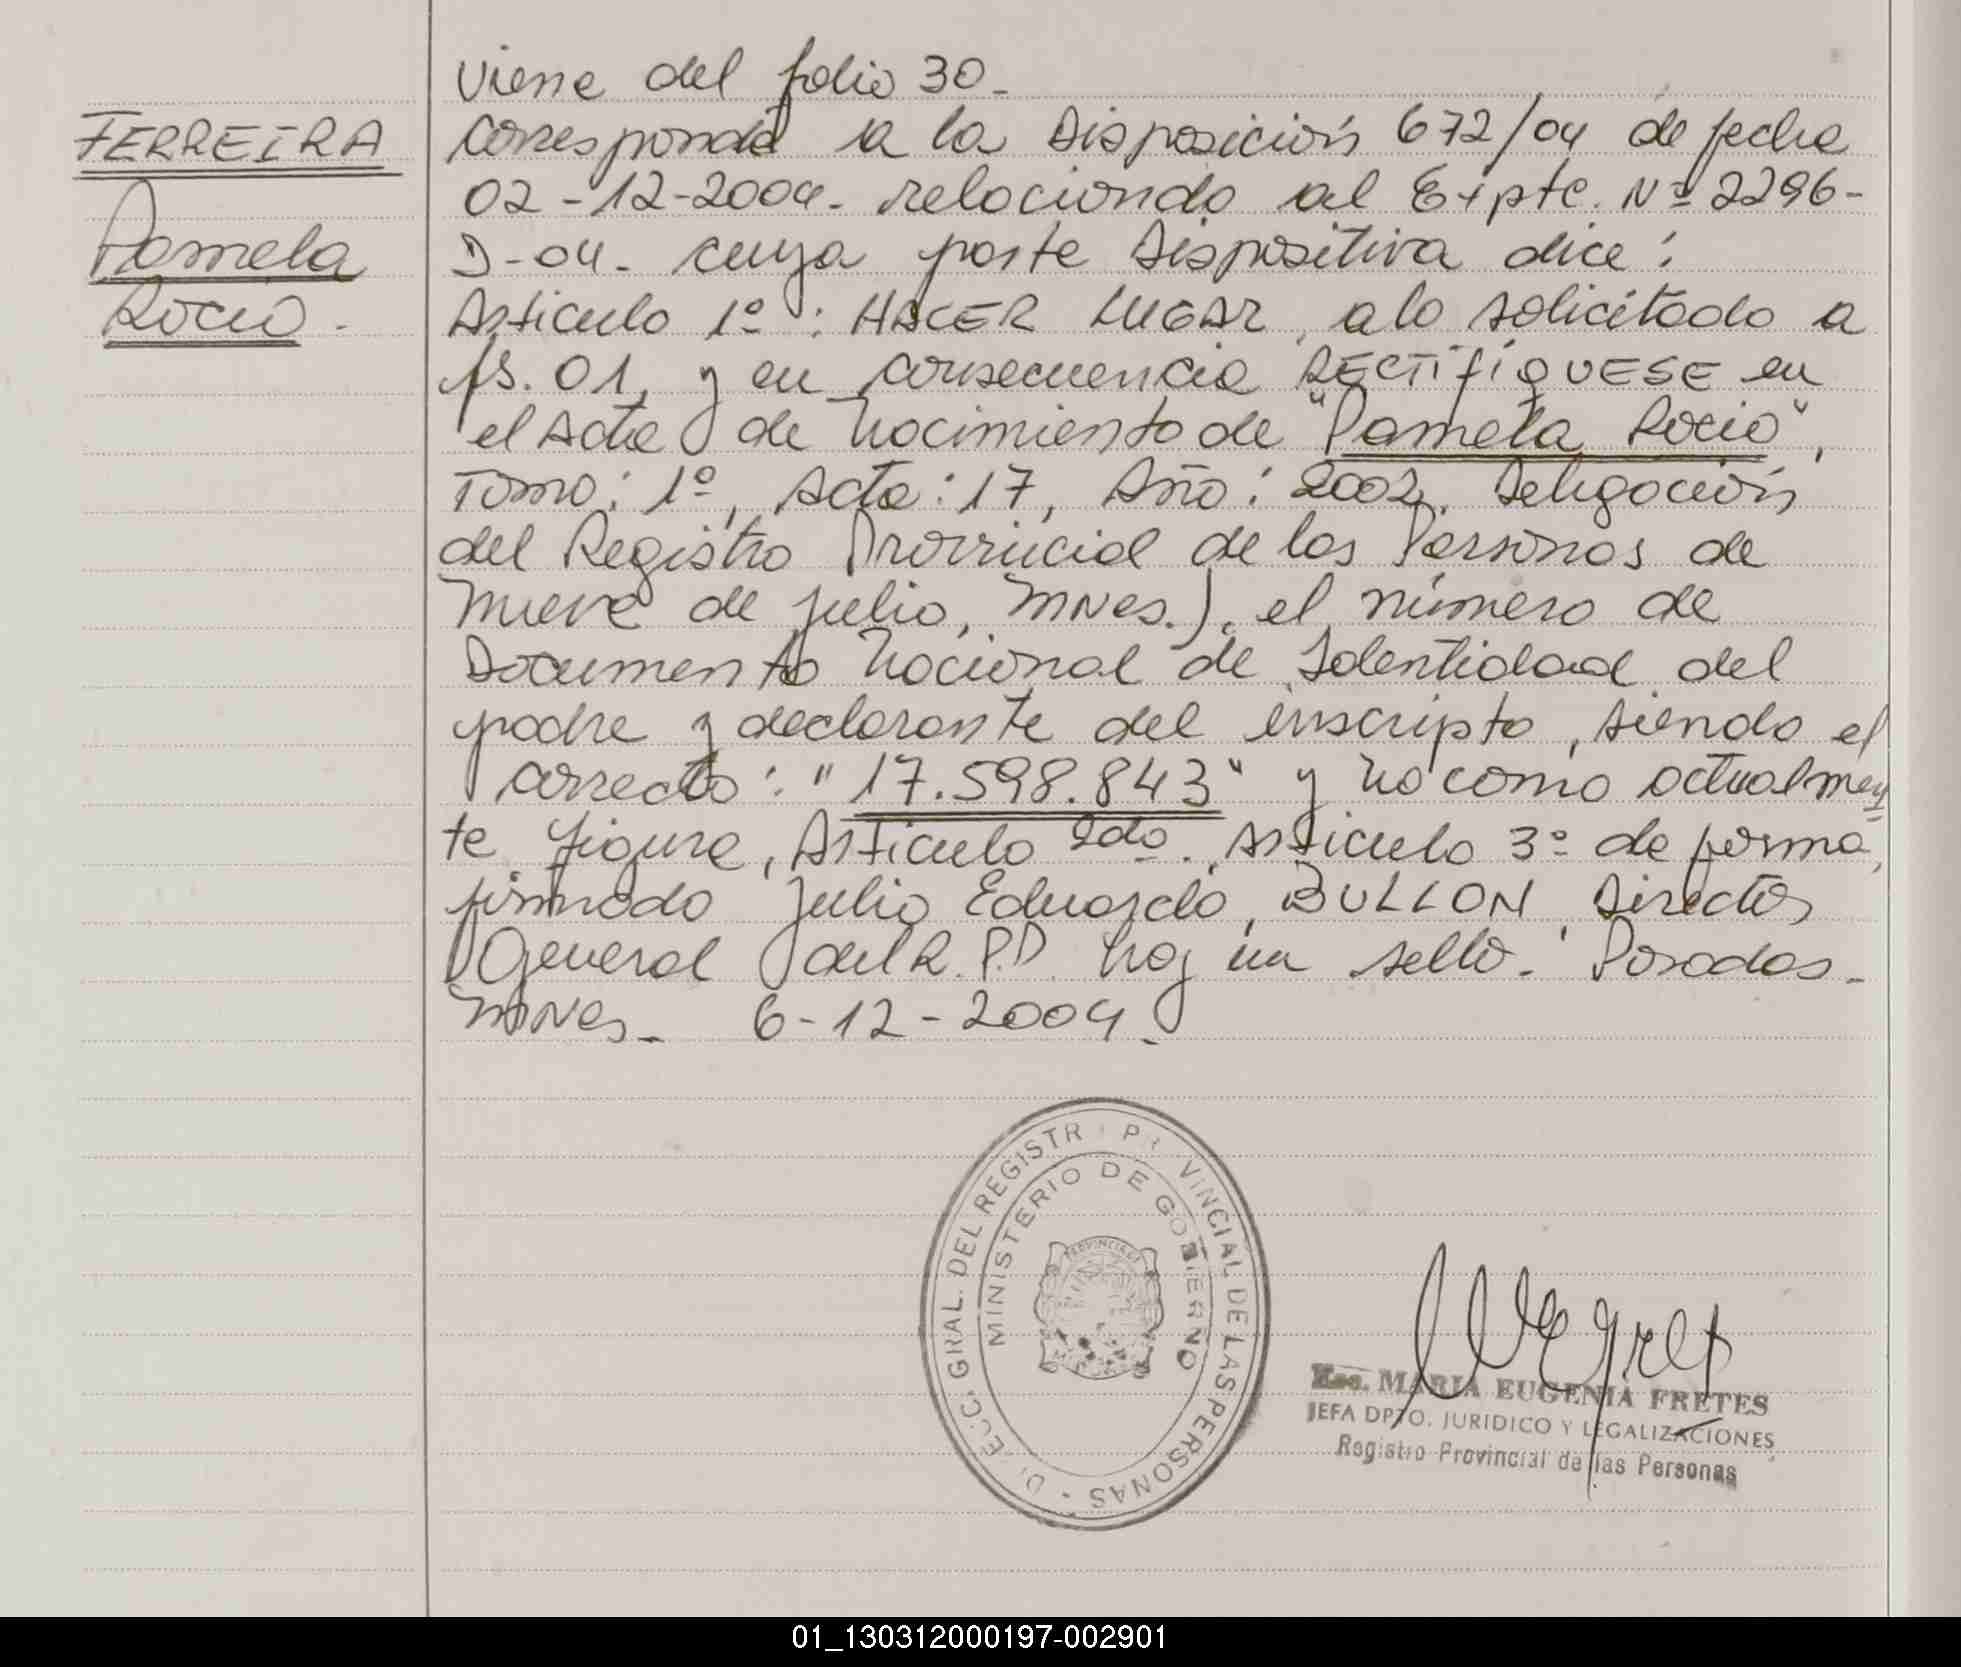 FERREIRA
Pamela
Rocio.
Viene del folio 30-
Corresponde a la Disposición 672/04 de fecha
02-12-2004- relacionado al Expte. Nº 2296-
D-04- cuya parte Dispositiva dice:
Articulo 1º: HACER LUGAR, a lo solicitado a
fs. 01, y en consecuencia RECTIFIQUESE en
el Acta de Nacimiento de "Pamela Rocio",
Tomo: 1º, Acta: 17, Año: 2002, Delegación
del Registro Provincial de las Personas de
Nueve de julio, MNes.), el número de
Documento Nacional de Identidad del
padre y declarante del inscripto, siendo el
correcto: "17.598.843" y no como actualmen
te figura, Articulo 2do., Articulo 3º de forma,
firmado Julio Eduardo BULLON Director
General del R.P.P. hay un sello. Posadas-
MNes- 6-12-2004-
DIRECC. GRAL. DEL REGISTRO PROVINCIAL DE LAS PERSONAS -
MINISTERIO DE GOBIERNO
PROVINCIA DE
MISIONES
Esc. MARIA EUGENIA FRETES
JEFA DPTO. JURIDICO Y LEGALIZACIONES
Registro Provincial de las Personas
01_130312000197-002901